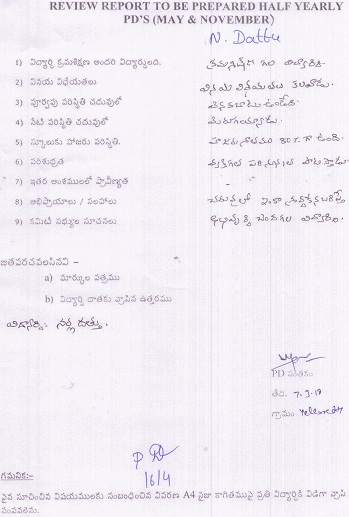 REVIEW REPORT TO BE PREPARED HALF YEARLY
PD'S (MAY & NOVEMBER)
N. Dattu
1) విద్యార్థి క్రమశిక్షణ అందరి విద్యార్థులది. క్రమశిక్షణ గల విద్యార్థి.
2) వినయ విధేయతలు వినయ విధేయతలు కలవాడు.
3) పూర్వపు పరిస్థితి చదువులో వెనకబాటు ఉండేది.
4) నేటి పరిస్థితి చదువులో మెరుగయ్యాడు.
5) స్కూలుకు హాజరు పరిస్థితి. హాజరు శాతము 80% గా ఉంది.
6) పరిశుభ్రత
7) ఇతర అంశములలో ప్రావీణ్యత
8) అభిప్రాయాలు / సలహాలు చదువులో
9) కమిటీ సభ్యుల సూచనలు అభివృద్ధి చెందగల విద్యార్థి.
జతపరచవలసినవి –
a) మార్కుల పత్రము
b) విద్యార్థి దాతకు వ్రాసిన ఉత్తరము
విద్యార్థి: నర్ల దత్తు.
PD సంతకం
తేది. 7.3.18
గ్రామం
16/4
గమనిక:-
పైన సూచించిన విషయములకు సంబంధించిన వివరణ A4 సైజు కాగితముపై ప్రతి విద్యార్థికి విడిగా వ్రాసి
పంపవలెను.